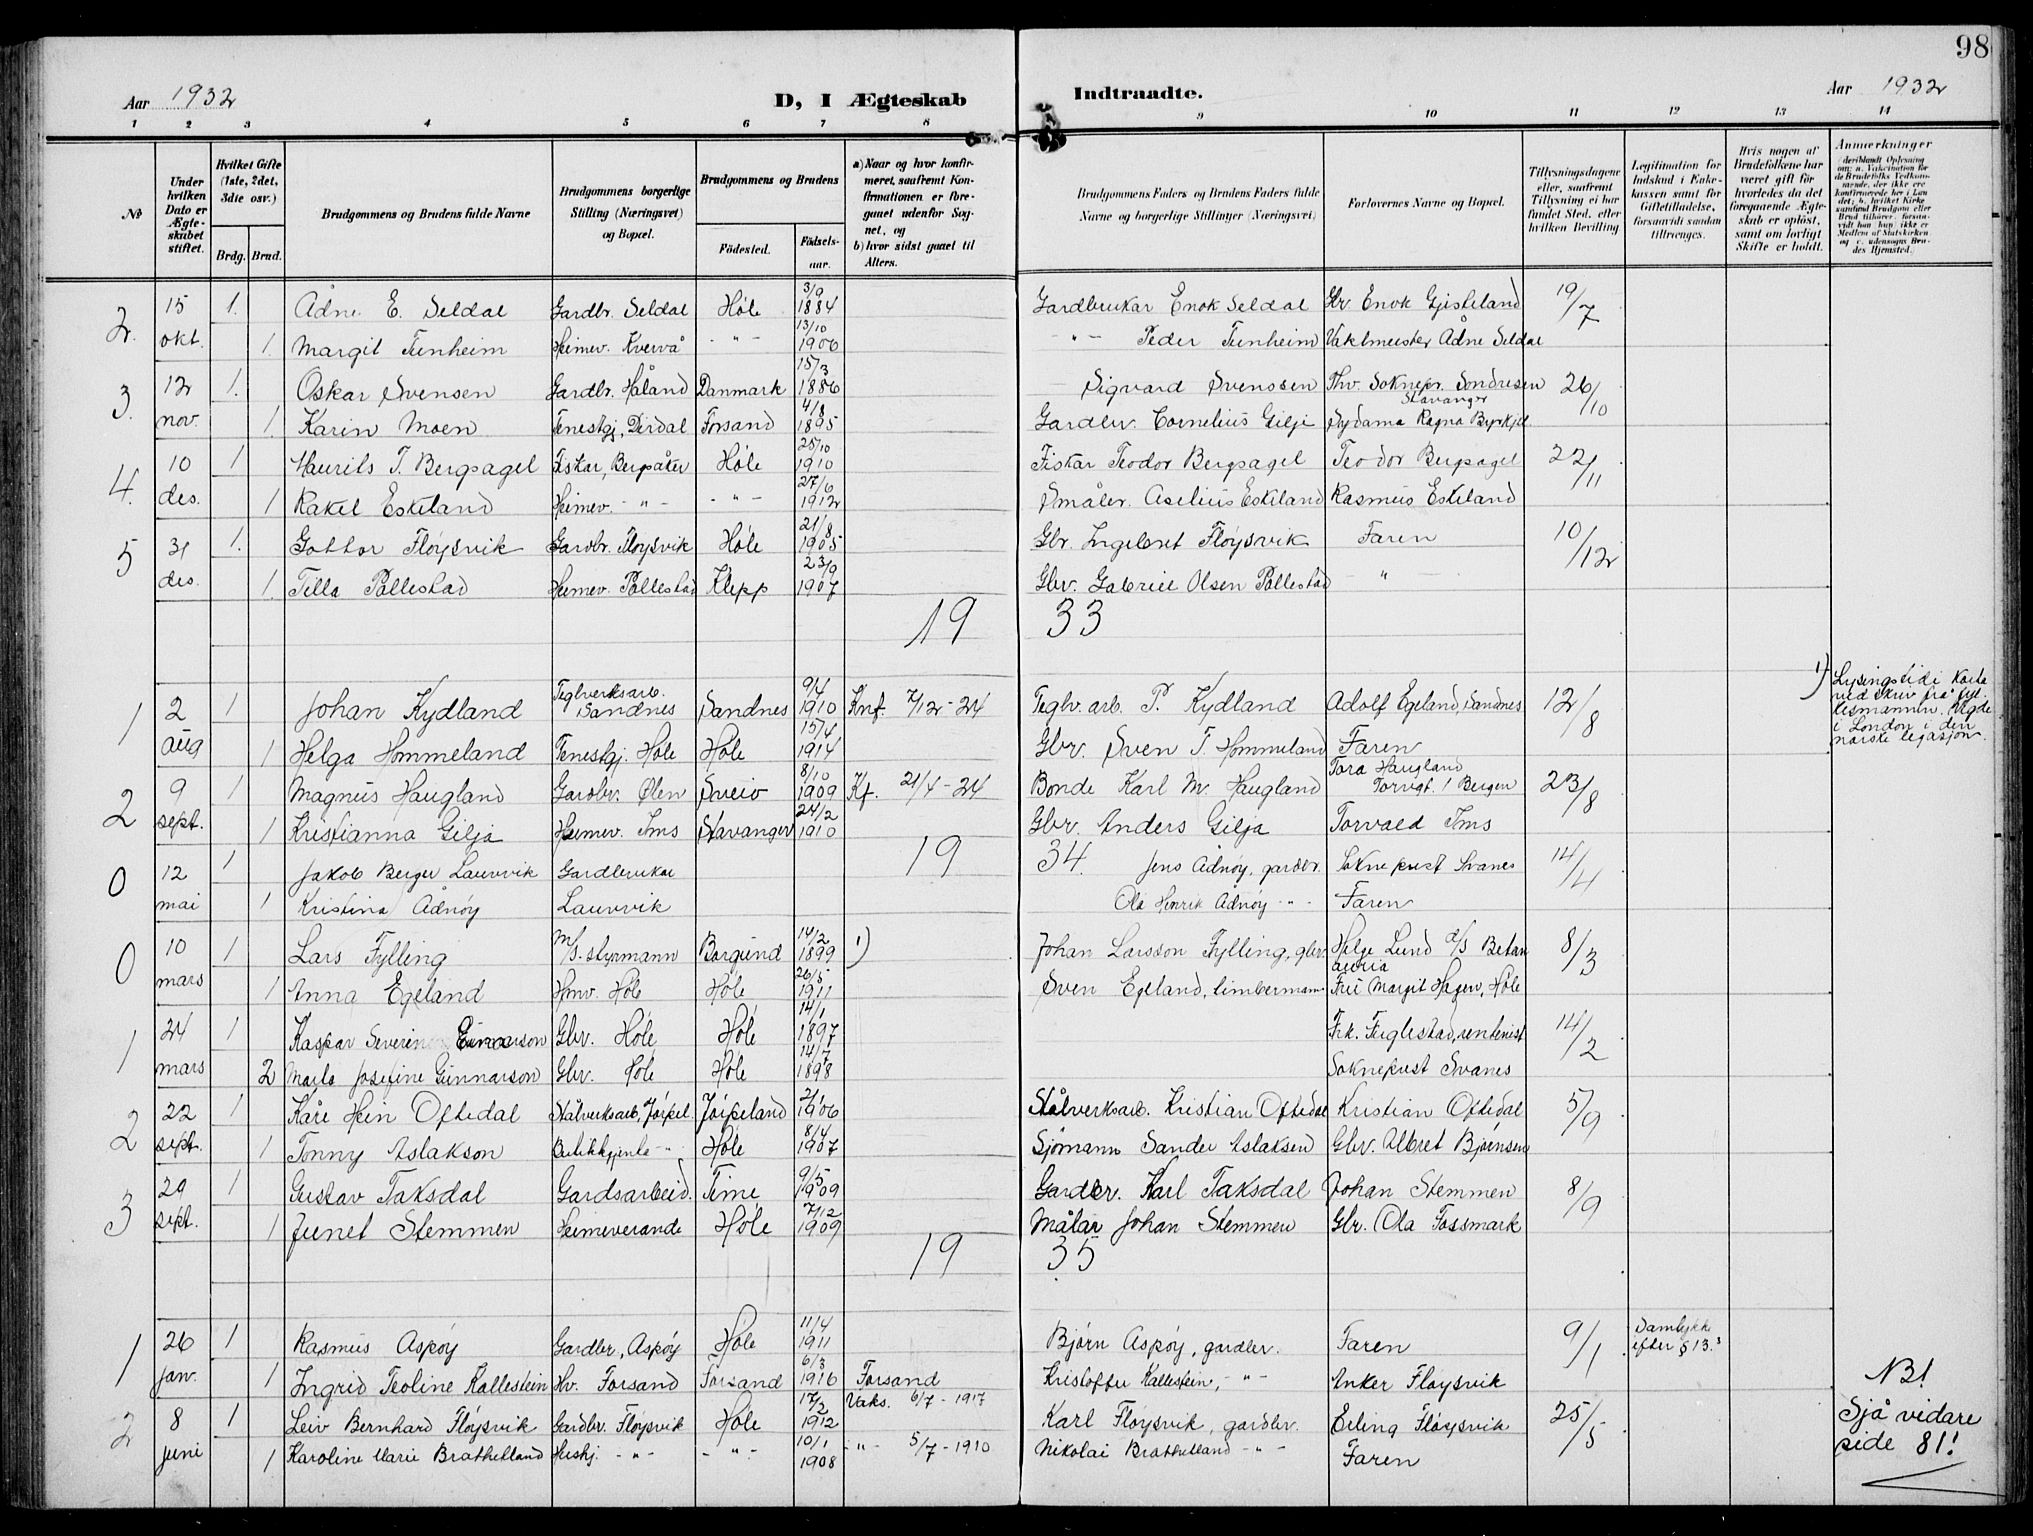 98
Aar 1932 D, I Ægteskab Indtraadte. Aar 1932
1 2 3 4 5 6 7 8 9 10 11 12 13 14
№
Under hvilken Dato er Ægteskabet stiftet.
Hvilket Gifte (1ste, 2det, 3die osv.)
Brdg. Brud.
Brudgommens og Brudens fulde Navne
Brudgommens borgerlige Stilling (Næringsvei) og Bopæl.
Brudgommens og Brudens
Födested. Födselsaar.
a) Naar og hvor konfirmeret, saafremt Konfirmationen er foregaaet udenfor Sognet, og
b) hvor sidst gaaet til Alters.
Brudgommens Faders og Brudens Faders fulde Navne og borgerlige Stillinger (Næringsvei)
Forlovernes Navne og Bopæl.
Tillysningsdagene eller, saafremt Tillysning ei har fundet Sted, efter hvilken Bevilling
Legitimation for Indskud i Enkekassen samt for Giftetilladelse, forsaavidt saadan tiltrænges.
Hvis nogen af Brudefolkene har været gift för hvorledes da det foregaaende Ægteskab er oplöst, samt om lovligt Skifte er holdt.
Anmerkninger
2. 15 okt. 1. Ådne E. Seldal Gardbr. Seldal Høle 3/9 1884 Gardbrukar Enok Seldal Gbr. Enok Gjisteland 19/7
1. Margit Tunheim Heimev. Kvervå - " - 13/10 1906 - " - Peder Tunheim Vaktmeister Ådne Seldal
3. 12 nov. 1. Oskar Svensen Gardbr. Håland Danmark 15/3 1886 Sigvard Svenssen Thv. Soknepr. Sondresen Stavanger 26/10
1. Karin Moen Tenestgj. Dirdal Forsand 4/8 1895 Gardbr. Cornelius Gilje Sydama Ragna Byrkjel
4. 10 des. 1 Maurits T. Bergsagel Fiskar, Bergsåker Høle 25/10 1910 Fiskar Teodor Bergsagel Teodor Bergsagel 22/11
1 Rakel Eskeland Heimev. - " - - " - 27/6 1912 Småbr. Aselius Eskeland Rasmus Eskeland
5 31 des. 1. Gottor Fløysvik Gardbr. Fløysvik Høle 21/8 1905 Gbr. Ingebret Fløysvik Faren 10/12
1. Tilla Pollestad Heimev. Pollestad Klepp 23/9 1907 Gbr. Gabriel Olsen Pollestad - " -
19 33
1 2 aug 1 Johan Kydland Teglverksarb. Sandnes Sandnes 9/4 1910 Knf. 7/12 - 24 Teglv. arb. P. Kydland Adolf Egeland, Sandnes 12/8
1) Lysingstid i korta ved skriv frå fylkesmannen. Vigde i London i den norske legasjon.
1 Helga Hommeland Tenestgj. Høle Høle 15/4 1914 Gbr. Sven T. Hommeland Faren
2 9 sept. 1 Magnus Haugland Gardbr. Ølen Sveio 8/10 1909 Kf. 21/4 - 24 Bonde Karl M. Haugland Tora Haugland Torvgt. 1 Bergen 23/8
1 Kristianna Gilja Heimev. Ims Stavanger 24/2 1910 Gbr. Anders Gilja Torvald Ims
19 34.
0 12 mai 1 Jakob Berger Lauvvik Gardbrukar Jens Ådnøy, gardbr. Sokneprest Svanes 14/4
1 Kristina Ådnøy Lauvvik Ola Henrik Ådnøy - " - Faren
0 10 mars 1 Lars Fylling M/S. styrmann Borgund 14/2 1899 1) Johan Larsson Fylling, gbr. Helge Lund 8/3
1 Anna Egeland Hmv. Høle Høle 26/5 1911 Sven Egeland, timbermann Fru Margit Hagen, Høle
1 24 mars 1 Kaspar Severin Einarson Gbr. Høle Høle 14/1 1897 Frk. Fuglestad, rentenist 14/2
2 Marta Josefine Gunnarson Gbr. Høle Høle 14/7 1898 Sokneprest Svanes
2 22 sept. 1 Kåre Hein Oftedal Stålverksarb. Jørpel. Jørpeland 2/1 1906 Stålverksarb. Kristian Oftedal Kristian Oftedal 5/9
1 Tonny Aslakson Butikkgjente - " - Høle 8/4 1907 Sjømann Sander Aslaksen Gbr. Albret Bjørnsen
3 29 sept. 1 Gustav Taksdal Gardsarbeid. Time 9/5 1909 Gardbr. Karl Taksdal Johan Stemmen 8/9
1 Junet Stemmen Heimeverande Høle 7/12 1909 Målar Johan Stemmen Gbr. Ola Fossmark
19 35
1 26 jan. 1 Rasmus Aspøy Gardbr, Aspøy Høle 11/4 1911 Bjørn Aspøy, gardbr. Faren 9/1 Samtykke efter § 13.3
1 Ingrid Teoline Kallestein Hv. Forsand Forsand 6/3 1916 Forsand Kristoffer Kallestein, - " - Anker Fløysvik
NB!
2 8 juni 1 Leiv Bernhard Fløysvik Gardbr. Fløysvik Høle 17/2 1912 Vaks. 6/7 - 1917 Karl Fløysvik, gardbr. Erling Fløysvik 25/5
Sjå vidare side 81!
1 Karoline Marie Brathetland Huskj. - " - - " - 10/1 1908 - " - 5/7 - 1910 Nikolai Brathetland - " - Faren